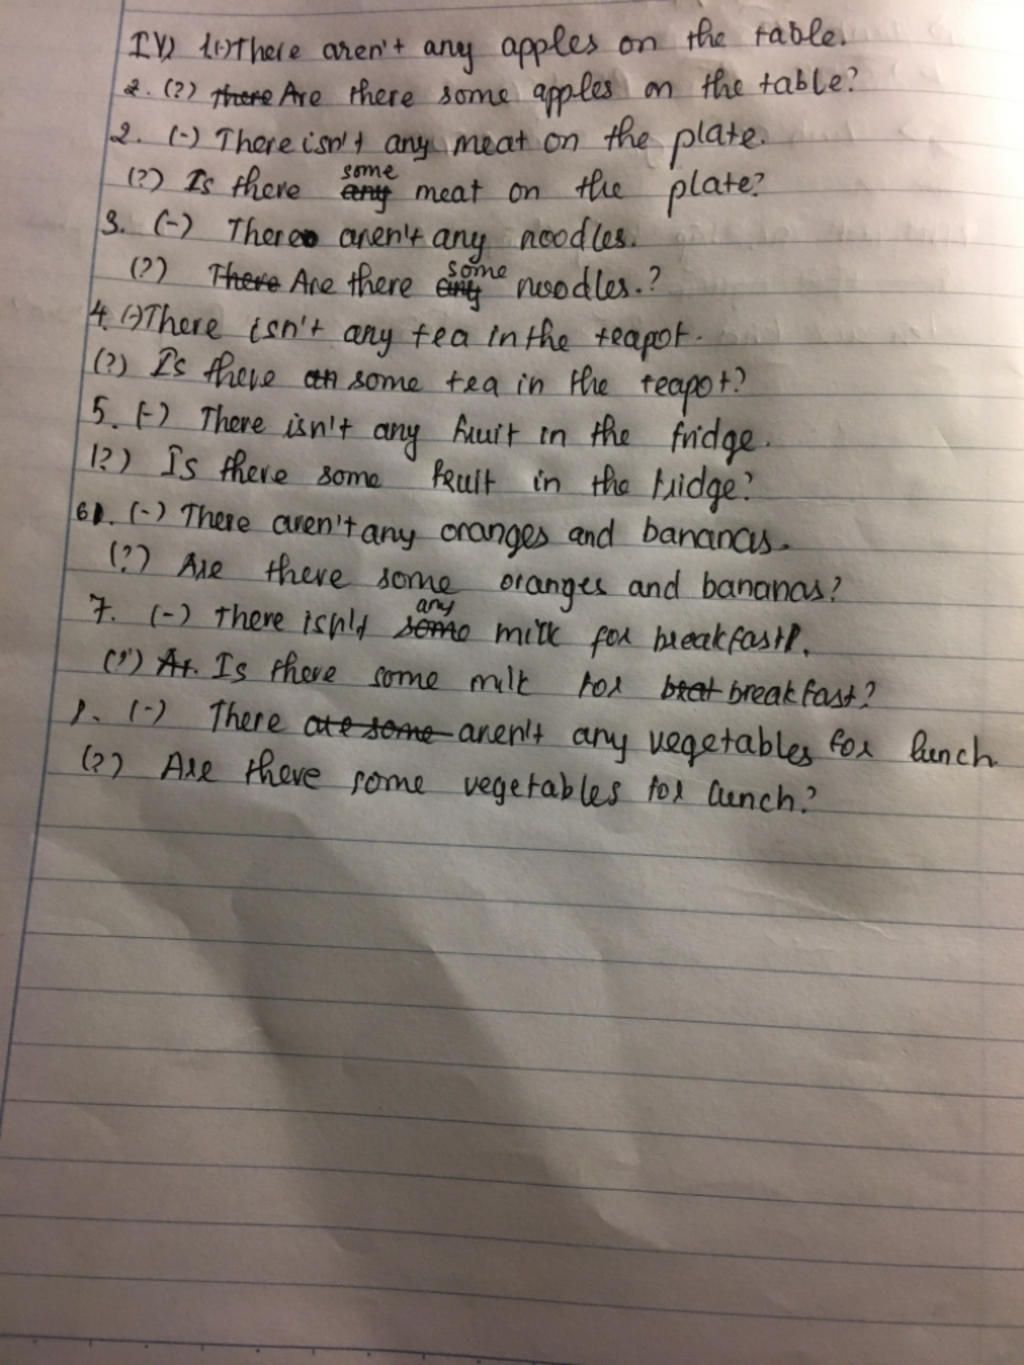 IV) 1(-) There aren't any apples on the table.
2. (?) there Are there some apples on the table?
2. (-) There isn't any meat on the plate.
(?) Is there any some meat on the plate?
3. (-) There aren't any noodles.
(?) There Are there any some noodles.?
4. (-) There isn't any tea in the teapot.
(?) Is there an some tea in the teapot?
5. (-) There isn't any fruit in the fridge.
(?) Is there some fruit in the fridge?
6. (-) There aren't any oranges and bananas.
(?) Are there some oranges and bananas?
7. (-) There isn't some any milk for breakfast.
(?) At. Is there some milk for breat breakfast?
(-) There are some aren't any vegetables for lunch
(?) Are there some vegetables for lunch?